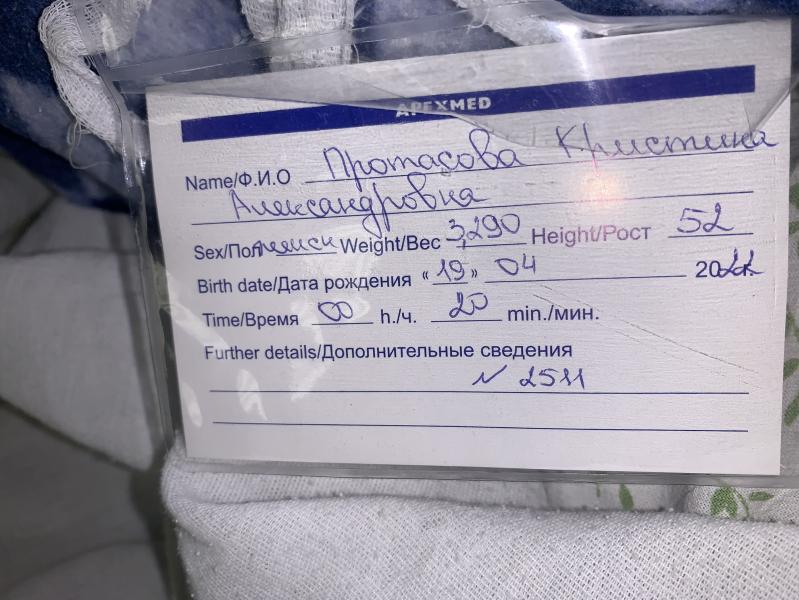 APEXMED
Name/Ф.И.О Протасова Кристина
Александровна
Sex/Пол женск Weight/Вес 3,290 Height/Рост 52
Birth date/Дата рождения « 19 » 04 2022
Time/Время 00 h./ч. 20 min./мин.
Further details/Дополнительные сведения
N 2511